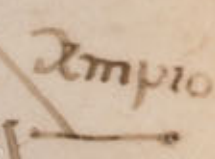 Æmpio